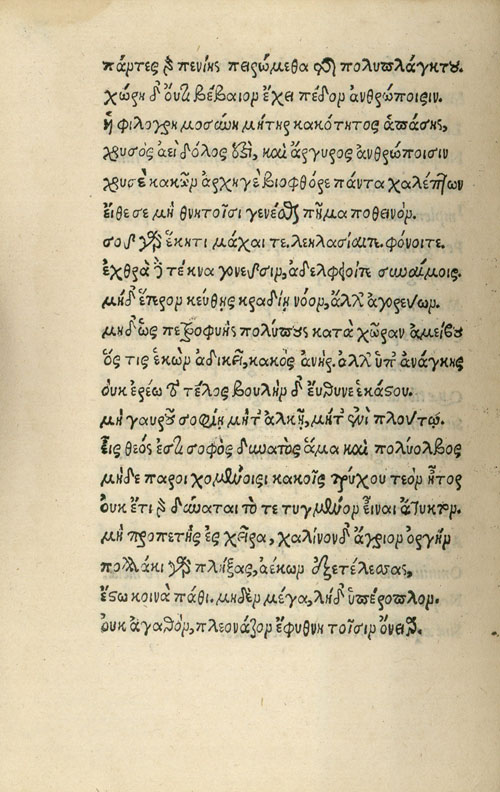 πάντες γὰρ πενίης πειρώμεθα καὶ πολυπλάγκτου.
χώρη δ' οὔτι βέβαιον ἔχει πέδον ἀνθρώποισιν.
ἡ φιλοχρημοσύνη μήτηρ κακότητος ἁπάσης,
χρυσὸς ἀεὶ δόλος ἐστὶ, καὶ ἄργυρος ἀνθρώποισιν
χρυσὲ κακῶν ἀρχηγὲ βιοφθόρε πάντα χαλέπτων
εἴθε σε μὴ θνητοῖσι γενέσθαι πῆμα ποθεινόν.
σοῦ γὰρ ἕκητι μάχαι τε. λεηλασίαι τε. φόνοι τε.
ἐχθρὰ δὲ τέκνα γονεῦσιν, ἀδελφοί τε συναίμοις.
μηδ' ἕτερον κεύθης κραδίῃ νόον, ἄλλ' ἀγορεύων.
μηδ' ὡς πετροφυὴς πολύπους κατὰ χῶραν ἀμείβου
ὅς τις ἑκὼν ἀδικεῖ, κακὸς ἀνήρ. ἀλλ' ὑπ' ἀνάγκης
οὐκ ἐρέω τὸ τέλος βουλὴν δ' εὔθυνε ἑκάστου.
μὴ γαυροῦ σοφίῃ μήτ' ἀλκῇ, μήτ' ἐνὶ πλούτῳ.
Εἷς θεός ἐστι σοφὸς δυνατὸς ἅμα καὶ πολύολβος
μηδὲ παροιχομένοισι κακοῖς τρύχου τεὸν ἦτορ
οὐκ ἔτι γὰρ δύναται τὸ τετυγμένον εἶναι ἄτυκτον.
μὴ προπετὴς ἐς χεῖρα, χαλίνου δ' ἄγριον ὀργήν
πολλάκι γὰρ πλήξας, ἀέκων φόνον ἐξετέλεσσας,
ἔστω κοινὰ πάθη. μηδὲν μέγα, μηδ' ὑπέροπλον.
οὐκ ἀγαθὸν, πλεονάζον ἔφυ θνητοῖσιν ὄνειαρ.